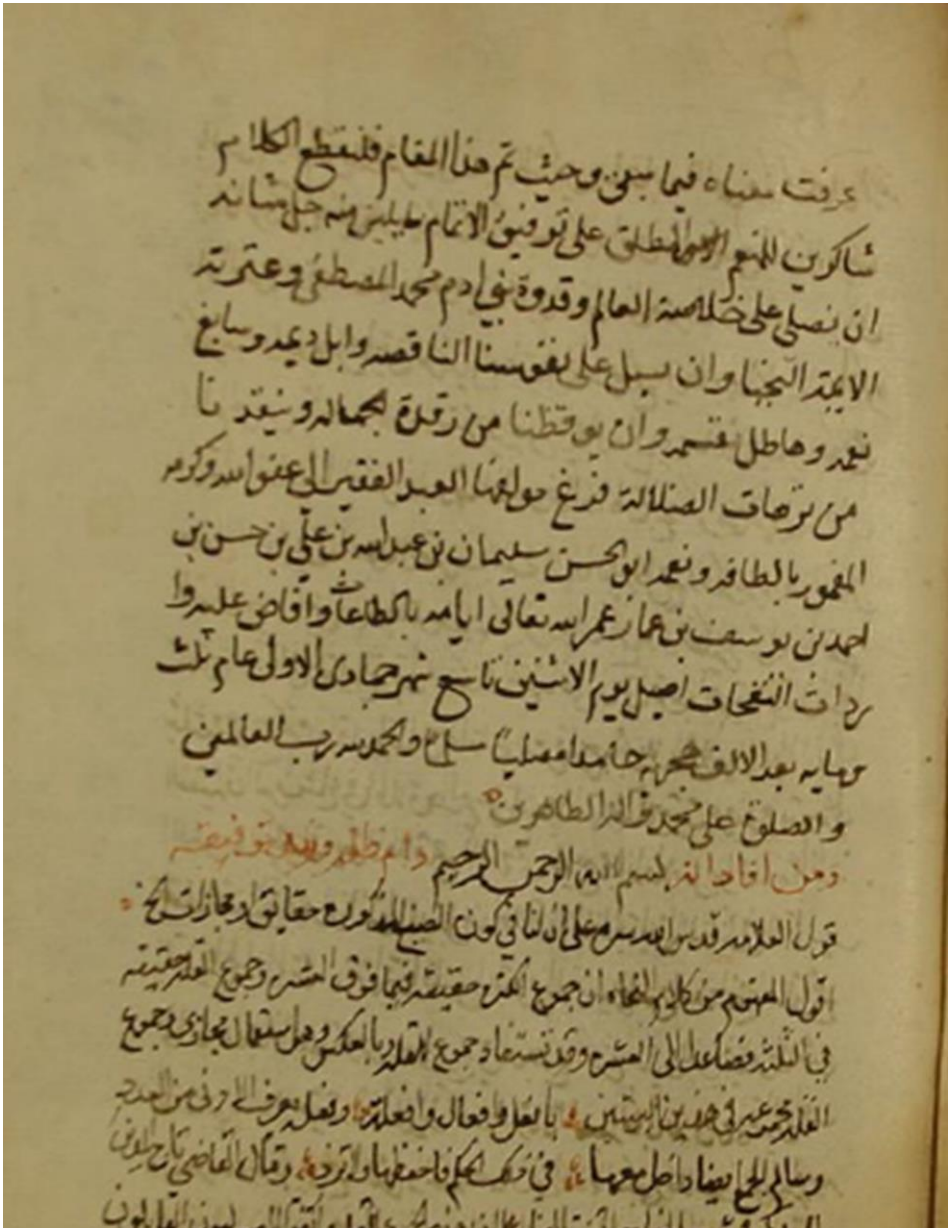 عرفت معناه فيما سبق وحيث تم هذا المقام فلنقطع الكلام
شاكرين للمنعم المطلق على توفيق الاتمام سايلين منه جل شانه
ان نصلي على خلاصة العالم وقدوة بني ادم محمد المصطفى وعترته
الايمة النجبا وان يسبل على نفوسنا الناقصه وابل ديمه وسابغ
نعمه وهاطل قسمه وان يوقظنا من رقدة الجهاله وينقذنا
من ترهات الضلالة فرغ مولفها العبد الفقير الى عفو الله وكرمه
المغمور بالطافه ونعمه ابو الحسن سليمان بن عبد الله بن علي بن حسن بن
احمد بن يوسف بن عمار عمر الله تعالى ايامه بالطاعات وافاض عليه وا
ردات النفحات اصيل يوم الاثنين تاسع شهر جمادى الاولى عام ثلث
ومايه بعد الالف هجريه حامدا مصليا مسلما والحمد لله رب العالمين
والصلوة على محمد واله الطاهرين
ومن افاداته بسم الله الرحمن الرحيم دام ظله
قول العلامه قدس الله سره على ان لنا في كون الصيغ المذكوره حقايق او مجازات الخ
اقول المفهوم من كلام النحاه ان جموع الكثره حقيقة فيما فوق العشره وجموع القله حقيقة
في الثلثه فصاعدا الى العشره وقد تستفاد جموع القله بالعكس وهل استعمال مجازي وجموع
القله مجموعه في هذين البيتين بافعل وافعال وافعلة وفعلة يعرف الادنى من العدد
وسالم الجمع ايضا داخل معها في ذلك الحكم فاحفظها ولا تزد وقال القاضي تاج الدين